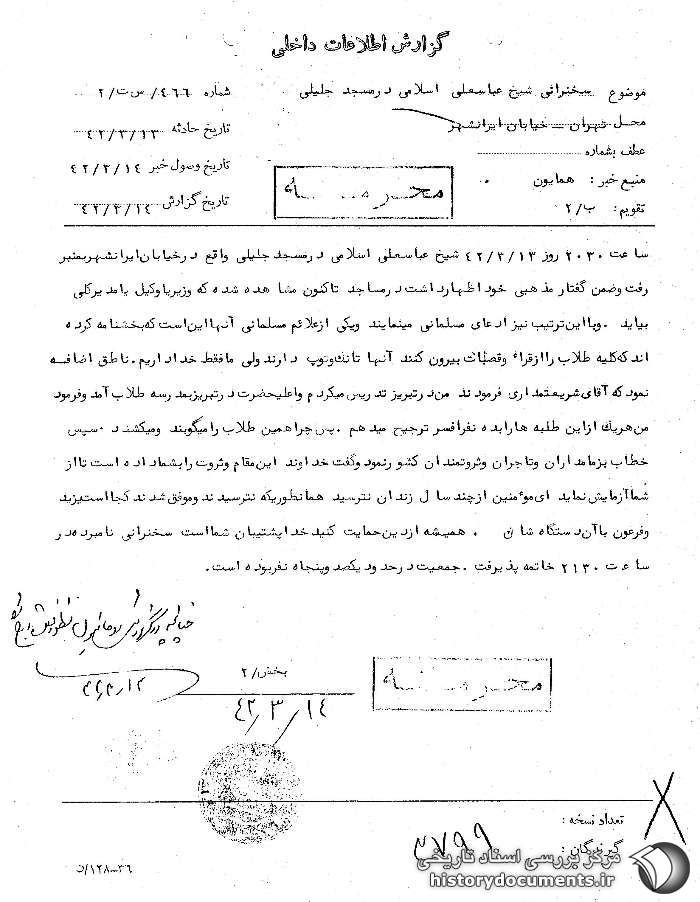 گزارش اطلاعات داخلی
موضوع سخنرانی شیخ عباسعلی اسلامی درمسجد جلیلی
شماره ۴۶۶/ س ت/ ۲
محل تهران – خیابان ایرانشهر
تاریخ حادثه ۴۲/۳/۱۳
عطف بشماره
تاریخ وصول خبر ۴۲/۳/۱۴
منبع خبر: همایون
محرمانه
تقویم: ب/۲
تاریخ گزارش ۴۲/۳/۱۴
ساعت ۲۰۳۰ روز ۴۲/۳/۱۳ شیخ عباسعلی اسلامی درمسجد جلیلی واقع درخیابان ایرانشهر بمنبر
رفت وضمن گفتار مذهبی خود اظهارداشت درمساجد تاکنون مشاهده شده که وزیریاوکیل یامدیرکلی
بیاید . وبااین ترتیب نیز ادعای مسلمانی مینمایند ویکی ازعلائم مسلمانی آنهااین است که بخشنامه کرده
اندکه کلیه طلاب راازقراء وقصبات بیرون کنند آنها تانک وتوپ دارند ولی مافقط خداداریم. ناطق اضافه
نمود که آقای شریعتمداری فرمودند من درتبریز تدریس میکردم واعلیحضرت درتبریز بمدرسه طلاب آمد وفرمود
من هریک ازاین طلبه هارابده نفرافسر ترجیح میدهم . پس چراهمین طلاب رامیگویند ومیکشند . سپس
خطاب بزمامداران وتاجران وثروتمندان کشور نمود وگفت خداوند این مقام وثروت رابشماداده است تااز
شماآزمایش نماید ای مومنین ازچند سال زندان نترسید همانطوریکه نترسیدند وموفق شدند کجااست یزید
وفرعون باآن دستگاه شان . همیشه ازدین حمایت کنید خداپشتیبان شمااست سخنرانی نامبرده در
ساعت ۲۱۳۰ خاتمه پذیرفت . جمعیت درحدود یکصد وپنجاه نفربوده است .
بخش/۲
محرمانه
۴۲/۳/۱۴
تعداد نسخه :
گیرندگان :
۳۷۹۹
۳۶–۱۲۸/د
مرکز بررسی اسناد تاریخی
historydocuments.ir